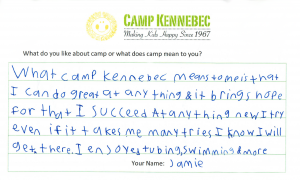 CAMP KENNEBEC
Making Kids Happy Since 1967
What do you like about camp or what does camp mean to you?
What camp kennebec means to me is that
I can do great at any thing & it brings hope
for that I succeed At anything new I try
even if it takes me many tries I know I will
get there. I enjoyes tubing, swimming & more
Your Name: Jamie